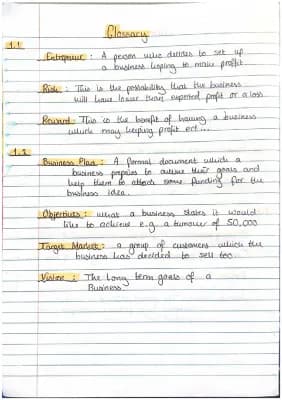 Glossary
1.1
Entrepreneur : A person who decides to set up
a business hoping to make profit
Risk : This is the possability that the business
will have lower than expected profit or a loss
Reward : This is the benefit of having a business
which may keeping profit ect...
1.2
Business Plan : A formal document which a
business prepares to achieve their goals and
help them to attend some funding for the
business idea.
Objectives : what a business states it would
like to achieve e.g. a turnover of 50,000
Target Market : a group of customers which the
business has decided to sell too.
Vision : The long term goals of a
Business